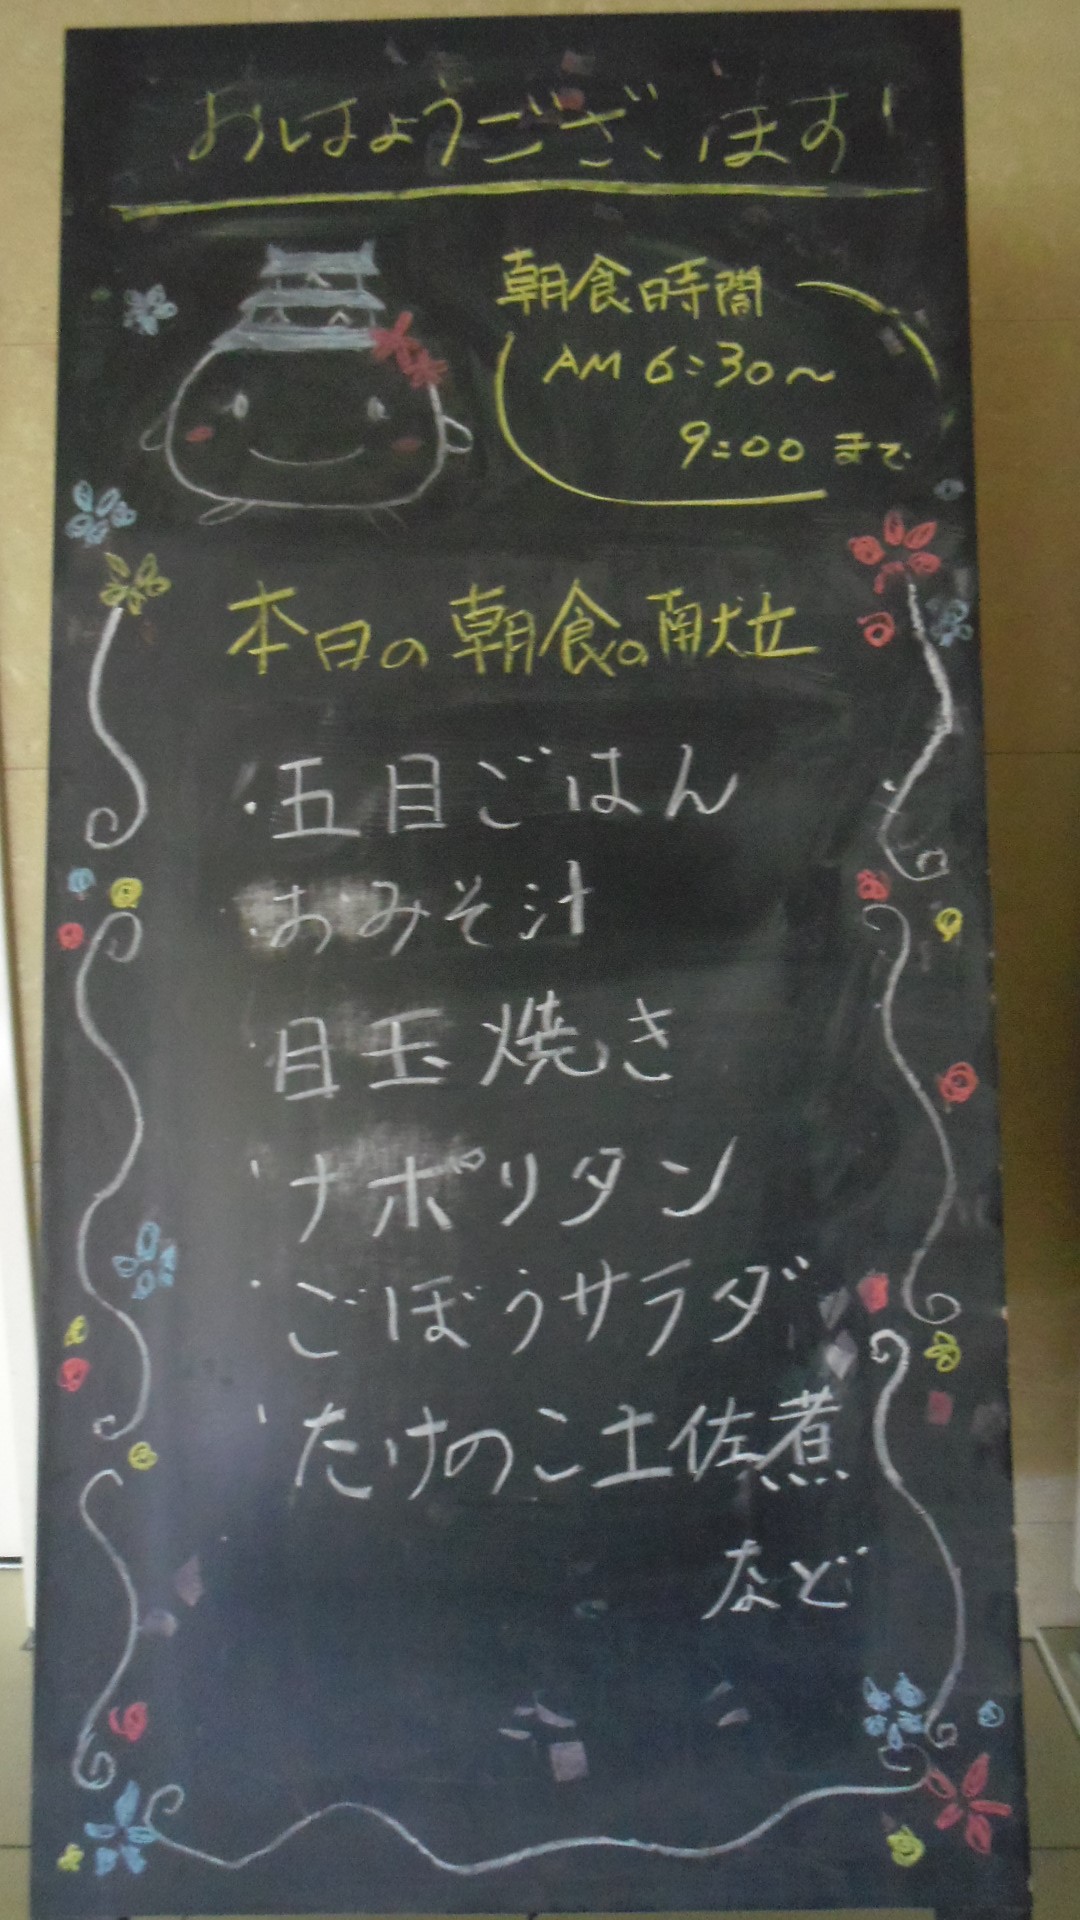 おはようございます!
朝食時間
AM 6:30～
9:00 まで
本日の朝食の献立
・五目ごはん
・おみそ汁
・目玉焼き
・ナポリタン
・ごぼうサラダ
・たけのこ土佐煮
など